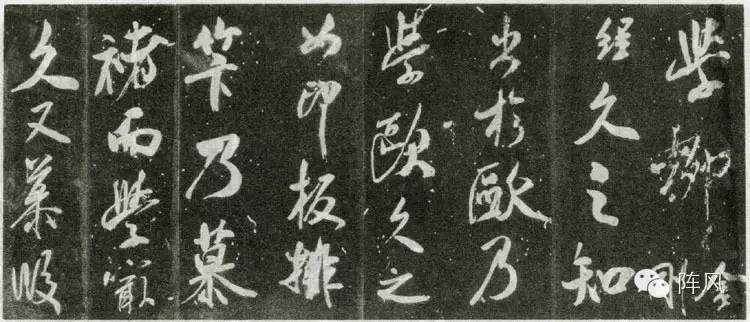 學柳金剛
經久之知
出於歐乃
學歐久之
如印板排
筭乃慕
褚而學最
久又慕段
阵风